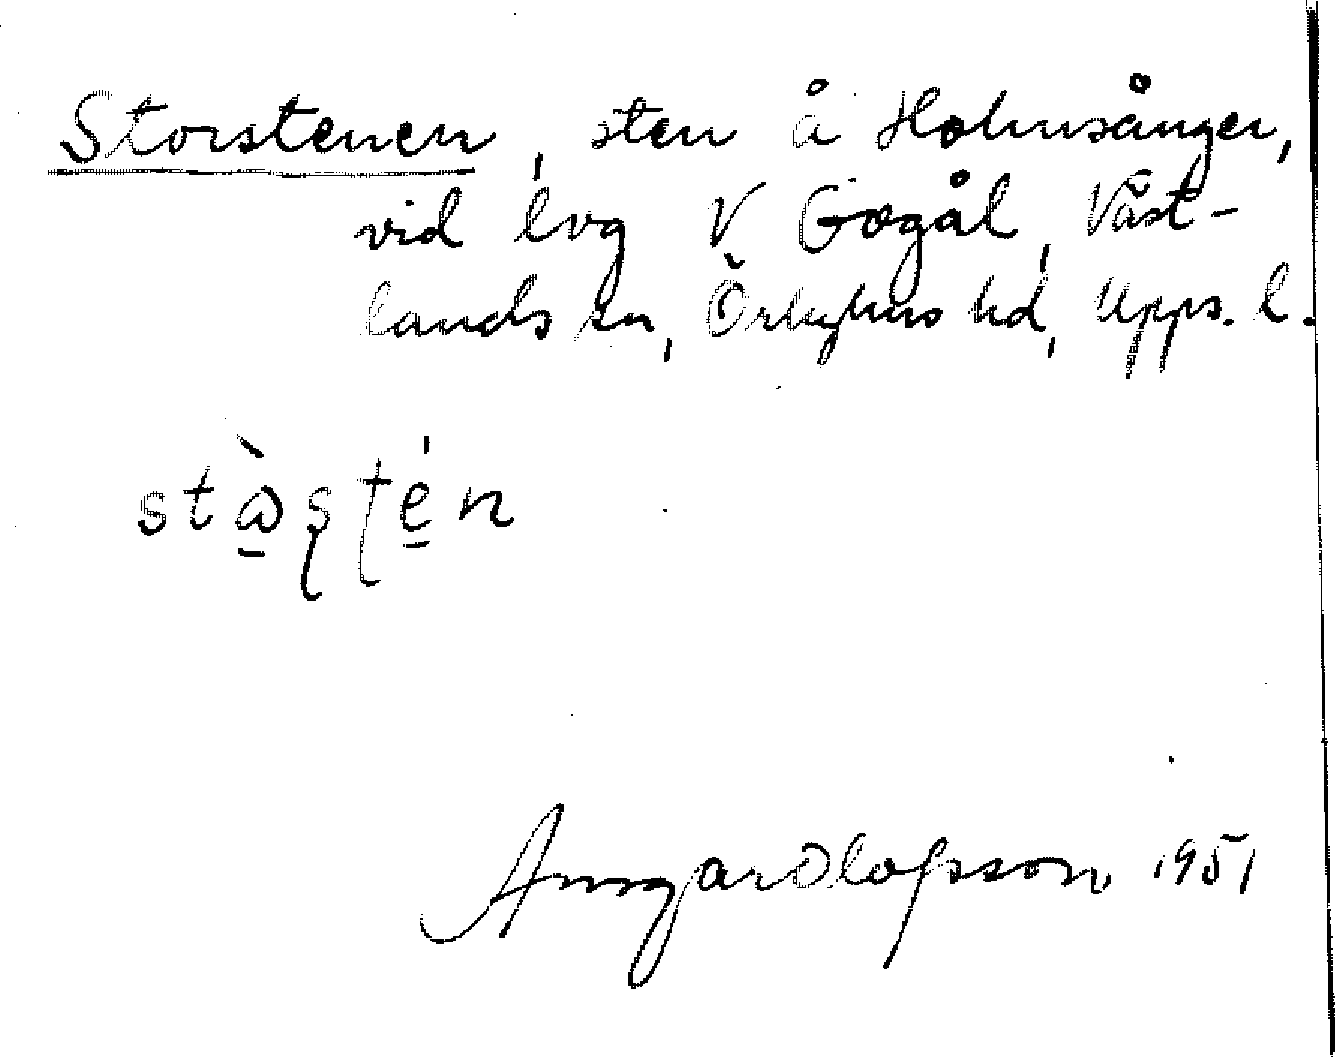 Storstenen, sten å Holmsånger,
vid lvg V Gogål, Väst-
lands sn, Örbyhus hd, Upps. l.
stɷ̀ʂʈén
Ansgar Olofsson 1951